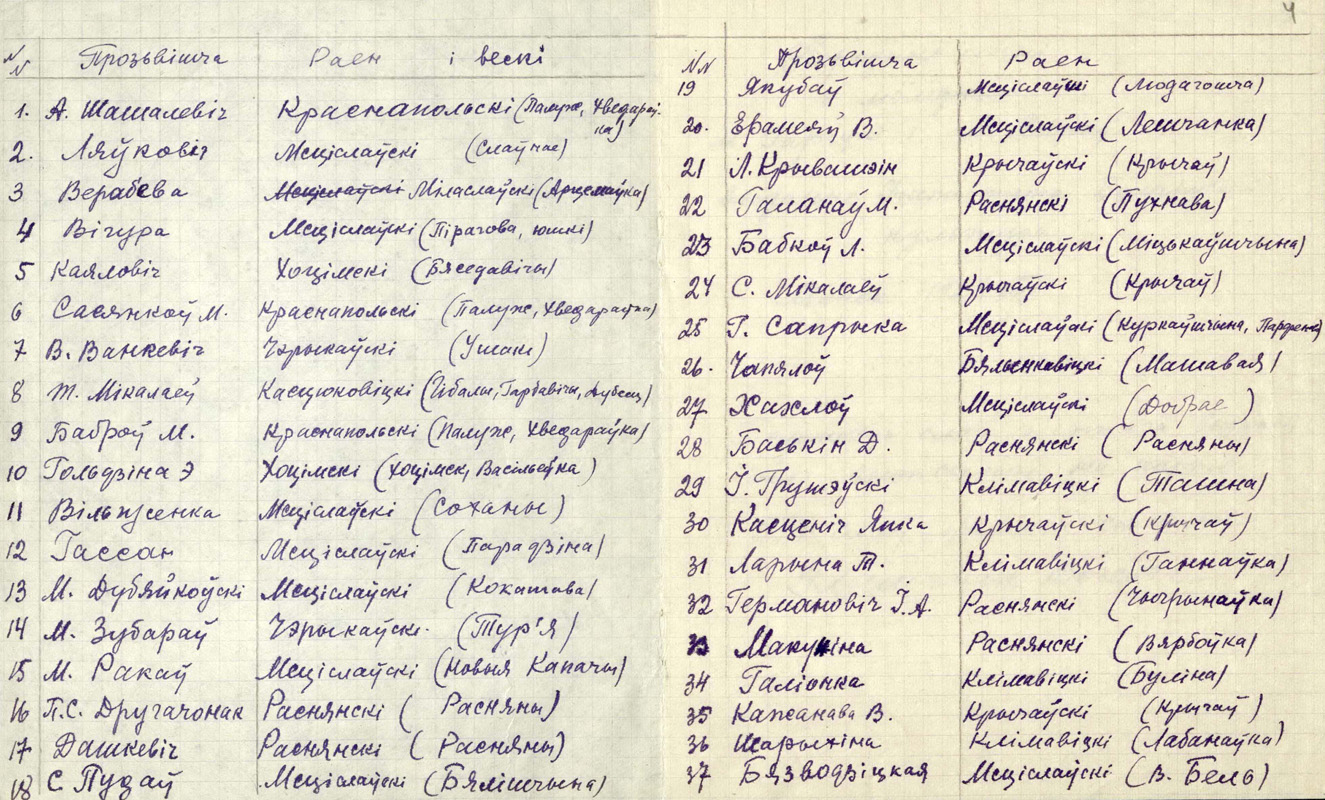 4
NN Прозьвішча Раен і вескі
1. А. Шашалевіч Краснапольскі (Палуж, Хведараў-
ка)
2. Ляўковіч Мсціслаўскі (Слаўнае)
3 Верабева Мсціслаўскі Міласлаўскі (Арцемаўка)
4 Вігура Мсціслаўскі (Пірагова, юшкі)
5 Каяловіч Хоцімскі (Бяседавічы)
6 Сасянкоў М. Краснапольскі (Палуж, Хведараўка)
7 В. Ванкевіч Чэрыкаўскі (Ушакі)
8 Ж. Мікалаеў Касцюковіцкі (Цібалы, Гарбавічы, Дубец)
9 Баброў М. Краснапольскі (Палуж, Хведараўка)
10 Гольдзіна Э Хоцімскі (Хоцімск, Васільеўка)
11 Вільжсенка Мсціслаўскі (Соханы)
12 Гассан Мсціслаўскі (Парадзіна)
13 М. Дубяйкоўскі Мсціслаўскі (Кокатава)
14 М. Зубараў Чэрыкаўскі. (Тур'я)
15 М. Ракаў Мсціслаўскі (Новыя Капачы)
16 П.С. Другачонак Раснянскі (Расняны)
17 Дашкевіч Раснянскі (Расняны)
18 С Пуцаў Мсціслаўскі (Бялішчына)
NN Прозьвішча Раен
19 Якубаў Мсціслаўскі (Людагошча)
20. Ерамеяў В. Мсціслаўскі (Лешчанка)
21 Л. Крывашэін Крычаўскі (Крычаў)
22 Галанаў М. Раснянскі (Пухнава)
23 Бабкоў Л. Мсціслаўскі (Міцькаўшчына)
24 С. Мікалаеў Крычаўскі (Крычаў)
25 Г. Сапрыка Мсціслаўскі (Куркаўшчына,
26. Чапялоў Бяльснкавіцкі (Машавая)
27 Хахлоў Мсціслаўскі (Добрае)
28 Баськін Д. Раснянскі (Расняны)
29 І. Грушэўскі Клімавіцкі (Ташна)
30 Касценіч Янка Крычаўскі (Крычаў)
31 Ларына Т. Клімавіцкі (Ганнаўка)
32 Германовіч І.А. Раснянскі
33 Макуніна Раснянскі (Вярбоўка)
34 Галіонка Клімавіцкі (Буліна)
35 Кажанава В. Крычаўскі (Крычаў)
36 Шарыхіна Клімавіцкі (Лабанаўка)
37 Бязводзіцкая Мсціслаўскі (В. Бель)